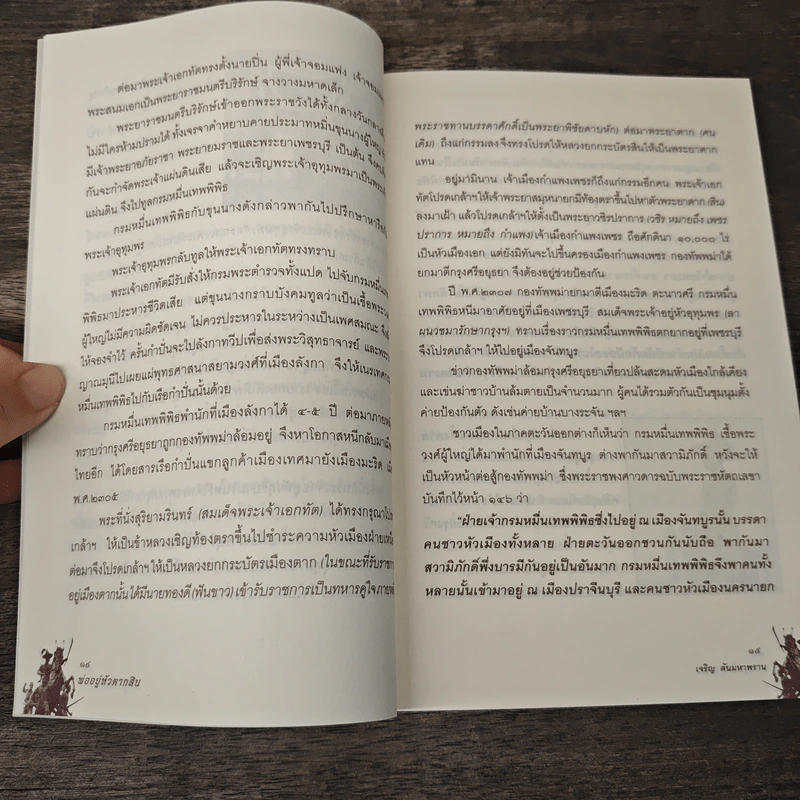 ต่อมาพระเจ้าเอกทัตทรงตั้งนายปิ่น ผู้พี่เจ้าจอมแฟง เจ้าจอม
พระสนมเอกเป็นพระยาราชมนตรีบริรักษ์ จางวางมหาดเล็ก
พระยาราชมนตรีบริรักษ์เข้าออกพระราชวังได้ทั้งกลางวันกลาง
ไม่มีใครห้ามปรามได้ ทั้งเจรจาคำหยาบคายประมาทหมิ่นขุนนางผู้ใหญ่
มีเจ้าพระยาอภัยราชา พระยายมราชและพระยาเพชรบุรี เป็นต้น จึง
กันจะกำจัดพระเจ้าแผ่นดินเสีย แล้วจะเชิญพระเจ้าอุทุมพรมาเป็นพระ
แผ่นดิน จึงไปทูลกรมหมื่นเทพพิพิธ
กรมหมื่นเทพพิพิธกับขุนนางดังกล่าวพากันไปปรึกษาหารือ
พระเจ้าอุทุมพร
พระเจ้าอุทุมพรกลับทูลให้พระเจ้าเอกทัตทรงทราบ
พระเจ้าเอกทัตมีรับสั่งให้กรมพระตำรวจทั้งแปด ไปจับกรมหมื่น
พิพิธมาประหารชีวิตเสีย แต่ขุนนางกราบบังคมทูลว่าเป็นเชื้อพระ
ผู้ใหญ่ไม่มีความผิดชัดเจน ไม่ควรประหารในระหว่างเป็นเพศสมณะ จึง
ให้จองจำไว้ ครั้นกำปั่นจะไปลังกาทวีปเพื่อส่งพระวิสุทธาจารย์ และพระ
ญาณมุนีไปเผยแผ่พุทธศาสนาสยามวงศ์ที่เมืองลังกา จึงให้เนรเทศ
หมื่นเทพพิพิธไปกับเรือกำปั่นนั้นด้วย
กรมหมื่นเทพพิพิธพำนักที่เมืองลังกาได้ ๔-๕ ปี ต่อมาภายหลัง
ทราบว่ากรุงศรีอยุธยาถูกกองทัพพม่าล้อมอยู่ จึงหาโอกาสหนีกลับมาเมือง
ไทยอีก ได้โดยสารเรือกำปั่นแขกลูกค้าเมืองเทศมายังเมืองมะริด เมื่อ
พ.ศ.๒๓๐๕
พระที่นั่งสุริยามรินทร์ (สมเด็จพระเจ้าเอกทัต) ได้ทรงกรุณาโปรด
เกล้าฯ ให้เป็นข้าหลวงเชิญท้องตราขึ้นไปชำระความหัวเมืองฝ่ายเหนือ
ต่อมาจึงโปรดเกล้าฯ ให้เป็นหลวงยกกระบัตรเมืองตาก (ในขณะที่รับราชการ
อยู่เมืองตากนั้น ได้มีนายทองดี (ฟันขาว) เข้ารับราชการเป็นทหารคู่ใจ ภายหลัง
๑๔
พ่ออยู่หัวตากสิน
พระราชทานบรรดาศักดิ์เป็นพระยาพิชัยดาบหัก) ต่อมาพระยาตาก (คน
เดิม) ถึงแก่กรรมลง จึงทรงโปรดให้หลวงยกกระบัตรสินให้เป็นพระยาตาก
แทน
อยู่มามินาน เจ้าเมืองกำแพงเพชรก็ถึงแก่กรรมอีกคน พระเจ้าเอก
ทัตโปรดเกล้าฯ ให้เจ้าพระยาสมุหนายกมีท้องตราขึ้นไปหาตัวพระยาตาก (สิน)
ลงมาเฝ้า แล้วโปรดเกล้าฯ ให้ตั้งเป็นพระยาวชิรปราการ (วชิร หมายถึง เพชร
ปราการ หมายถึง กำแพง) เจ้าเมืองกำแพงเพชร ถือศักดินา ๑๐,๐๐๐ ไร่
เป็นหัวเมืองเอก แต่ยังมิทันจะไปขึ้นครองเมืองกำแพงเพชร กองทัพพม่าได้
ยกมาตีกรุงศรีอยุธยา จึงต้องอยู่ช่วยป้องกัน
ปี พ.ศ.๒๓๐๗ กองทัพพม่ายกมาตีเมืองมะริด ตะนาวศรี กรมหมื่น
เทพพิพิธหนีมาอาศัยอยู่ที่เมืองเพชรบุรี สมเด็จพระเจ้าอยู่หัวอุทุมพร (ลา
ผนวชมารักษากรุงฯ) ทราบเรื่องราวกรมหมื่นเทพพิพิธตกยากอยู่ที่เพชรบุรี
จึงโปรดเกล้าฯ ให้ไปอยู่เมืองจันทบูร
ข่าวกองทัพพม่าล้อมกรุงศรีอยุธยาเที่ยวปล้นสะดมหัวเมืองใกล้เคียง
และเข่นฆ่าชาวบ้านล้มตายเป็นจำนวนมาก ผู้คนได้รวมตัวกันเป็นชุมนุมตั้ง
ค่ายป้องกันตัว ดังเช่นค่ายบ้านบางระจัน ฯลฯ
ชาวเมืองในภาคตะวันออกต่างก็เห็นว่า กรมหมื่นเทพพิพิธ เชื้อพระ
วงศ์ผู้ใหญ่ได้มาพำนักที่เมืองจันทบูร ต่างพากันมาสวามิภักดิ์ หวังจะให้
เป็นหัวหน้าต่อสู้กองทัพพม่า ซึ่งพระราชพงศาวดารฉบับพระราชหัตถเลขา
บันทึกไว้หน้า ๑๔๖ ว่า
"ฝ่ายเจ้ากรมหมื่นเทพพิพิธซึ่งไปอยู่ ณ เมืองจันทบูรนั้น บรรดา
คนชาวหัวเมืองทั้งหลาย ฝ่ายตะวันออกชวนกันนับถือ พากันมา
สวามิภักดิ์พึ่งบารมีกันอยู่เป็นอันมาก กรมหมื่นเทพพิพิธจึงพาคนทั้ง
หลายนั้นเข้ามาอยู่ ณ เมืองปราจีนบุรี และคนชาวหัวเมืองนครนายก
๑๕
เจริญ ตันมหาพราน